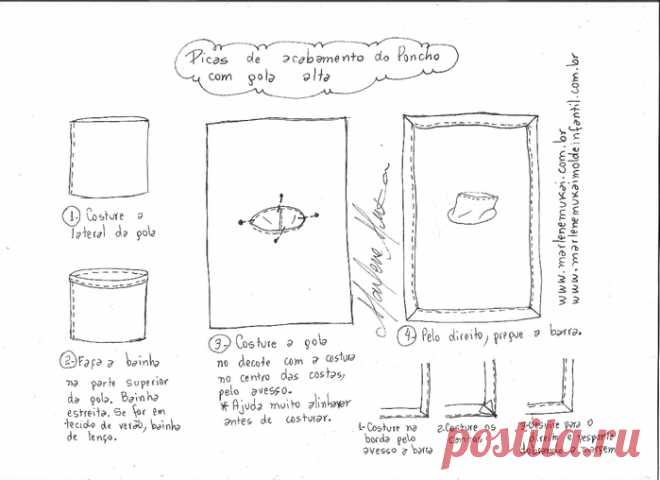 Dicas de acabamento do Poncho
com gola alta
1- Costure a
lateral da gola
2- Faça a bainha
na parte superior
da gola. Bainha
estreita. Se for em
tecido de verão, bainha
de lenço.
3- Costure a gola
no decote com a costura
no centro das costas,
pelo avesso.
* Ajuda muito alinhavar
antes de costurar.
Marlene Mukai
www.marlenemukai.com.br
www.marlenemukaimoldeinfantil.com.br
4- Pelo direito, pregue a barra.
1- Costure na
borda pelo
avesso a barra
2- Costure os
cantos
3- Desvire para o
direito e
a margem
postila.ru